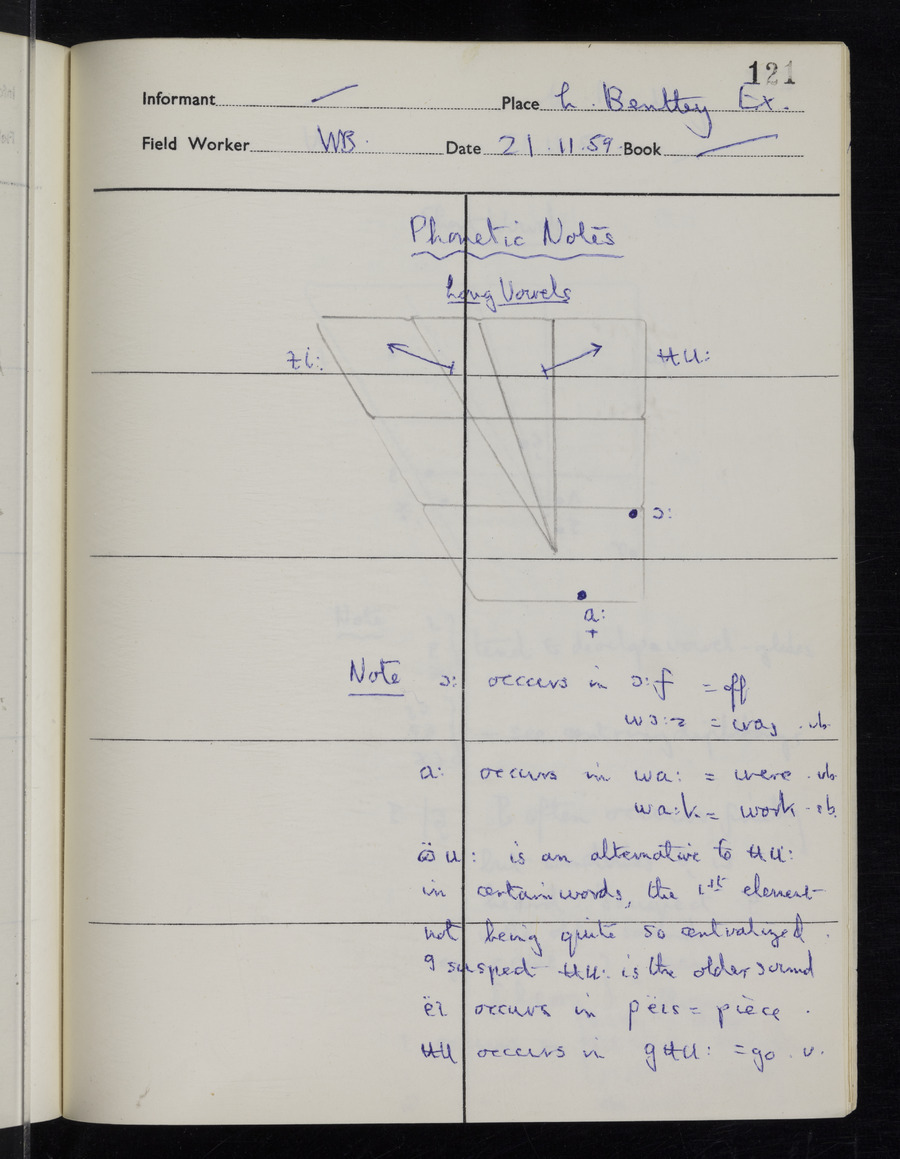 121
Informant Place L. Bentley Ex.
Field Worker WB. Date 21.11.59 Book
Phonetic Notes
Long Vowels
ɨi: ʉu:
ɔ:
a:
Note ɔ: occurs in ɔ:f = off
wɔ:z = was . vb.
a: occurs in wa: = were . vb.
wa:k = work - sb.
u: is an alternative to ʉu:
in certain words, the 1st element
not being quite so centralized .
I suspect ʉu: is the older sound
ëɪ occurs in pëɪs = piece .
ʉu occurs in gʉu: = go . v.